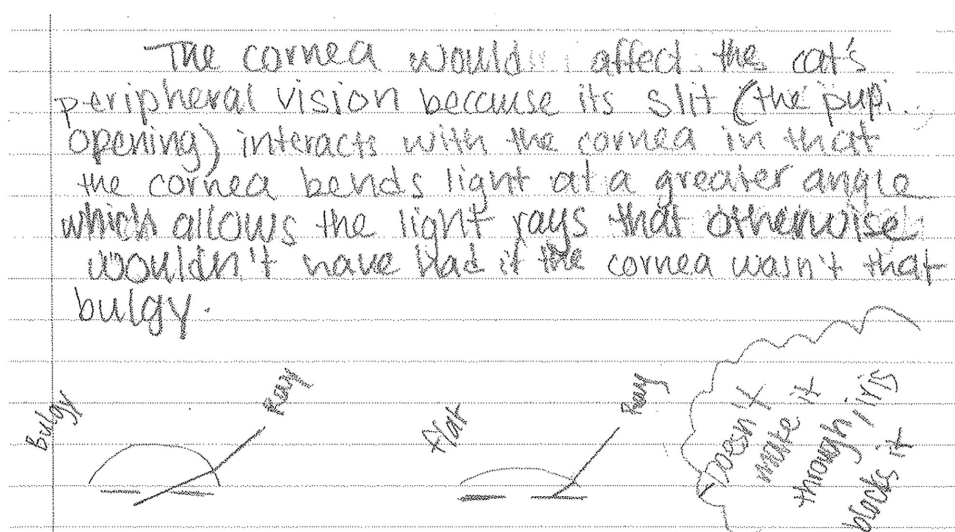 The cornea would affect the cat's
peripheral vision because its slit (the pup.
opening) interacts with the cornea in that
the cornea bends light at a greater angle
which allows the light rays that otherwise
wouldn't have had if the cornea wasn't that
bulgy.
Bulgy
Ray
flat
Ray
Doesn't
make it
through, iris
blocks it